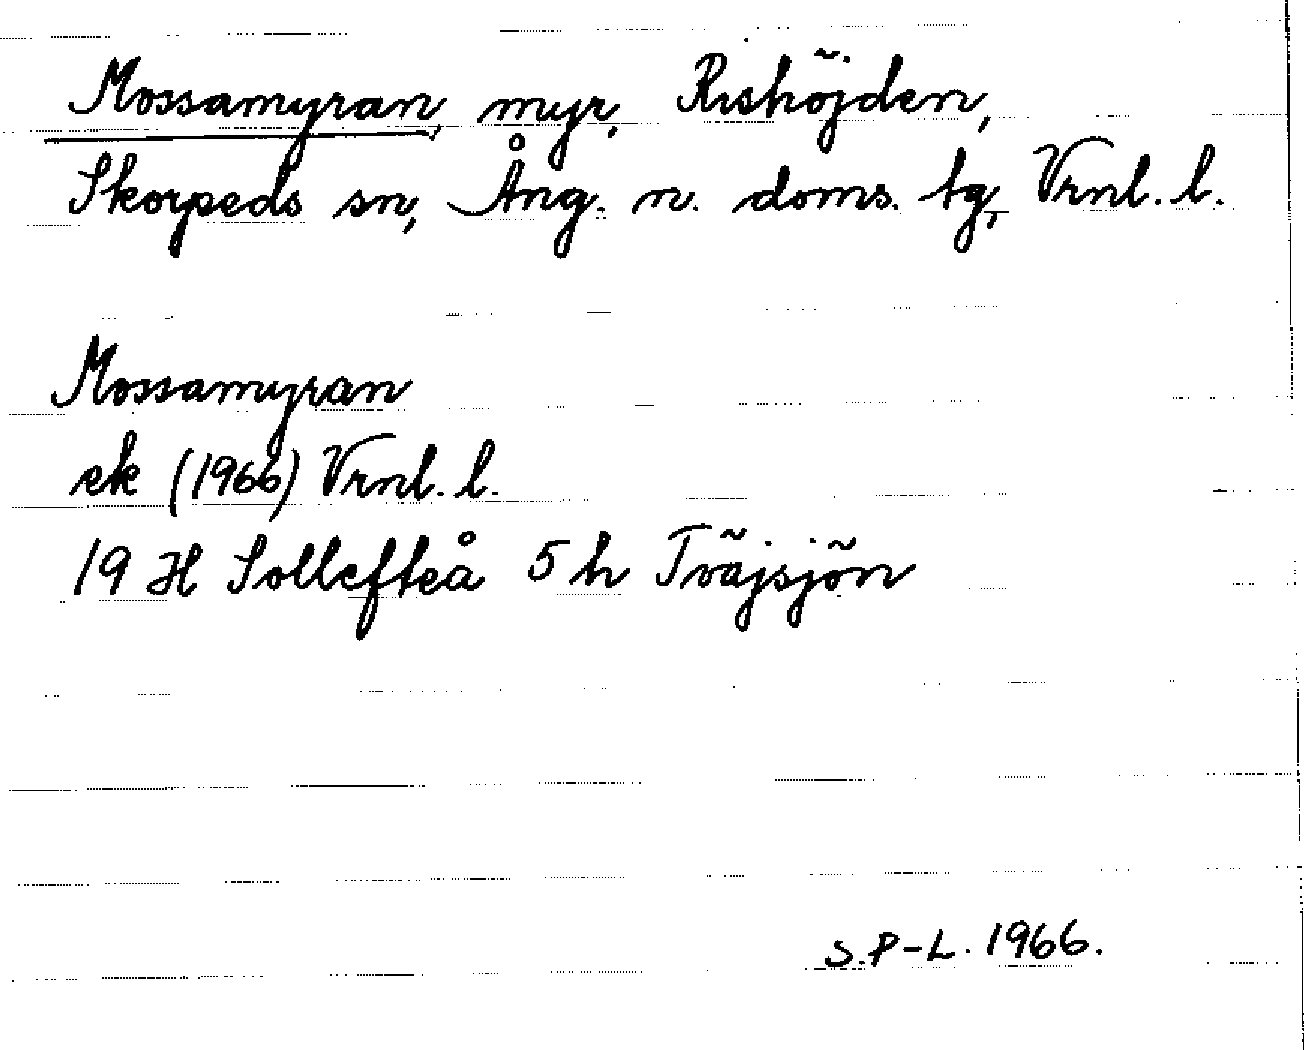 Mossamyran, myr, Rishöjden,
Skorpeds sn, Ång. n. doms. tg, Vrnl. l.
Mossamyran
ek (1966) Vrnl. l.
19 H Sollefteå 5 h Tväjsjön
S.P-L. 1966.